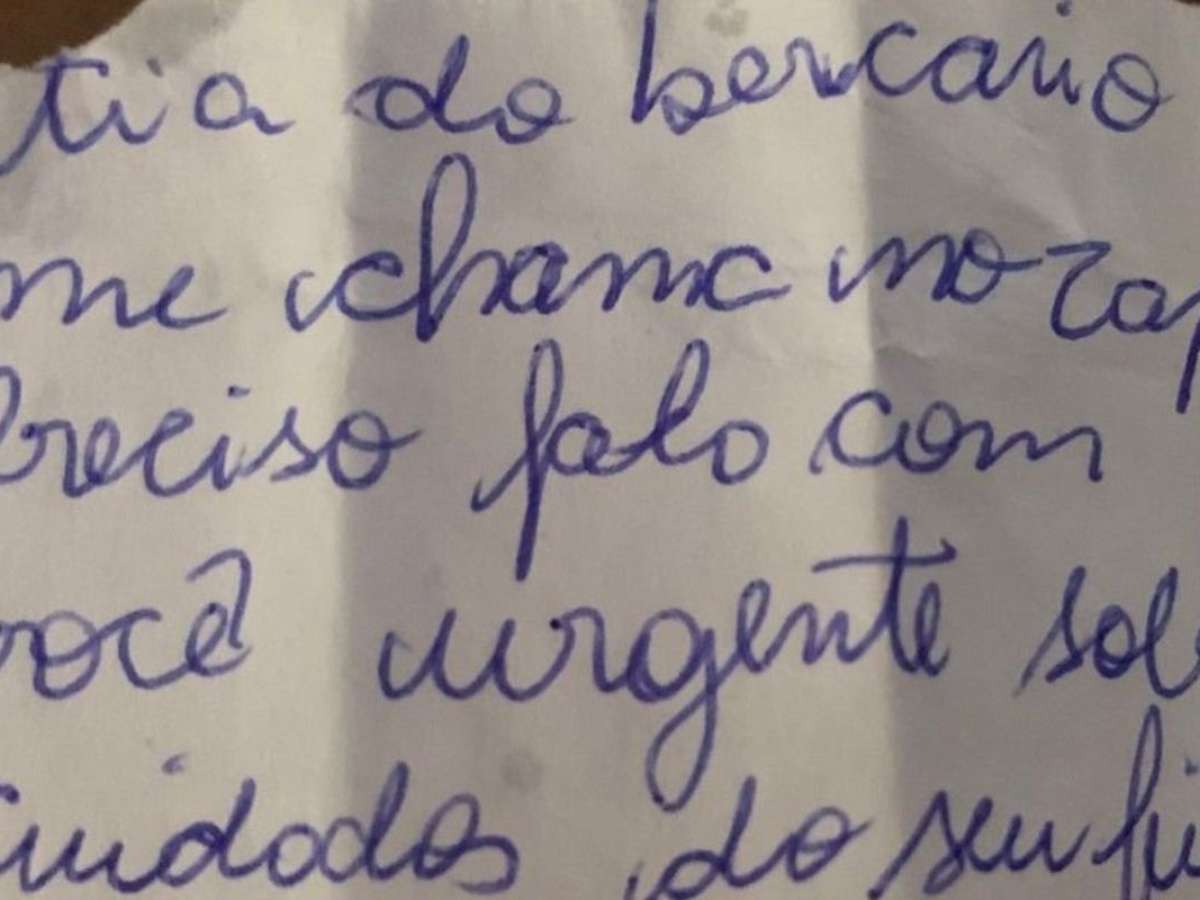 tia do bercario
me chama no zap
preciso falo com
você urgente sob
cuidados do seu fi